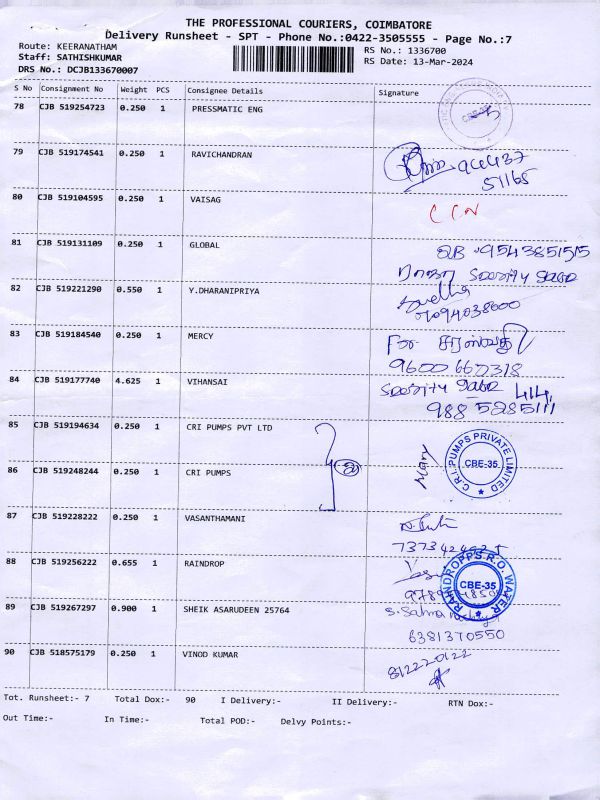 THE PROFESSIONAL COURIERS, COIMBATORE
Delivery Runsheet - SPT - Phone No.:0422-3505555 - Page No.:7
Route: KEERANATHAM RS No.: 1336700
Staff: SATHISHKUMAR RS Date: 13-Mar-2024
DRS No.: DCJB133670007
S No Consignment No Weight PCS Consignee Details Signature
78 CJB 519254723 0.250 1 PRESSMATIC ENG
79 CJB 519174541 0.250 1 RAVICHANDRAN
51165
80 CJB 519104595 0.250 1 VAISAG
81 CJB 519131109 0.250 1 GLOBAL
82 CJB 519221290 0.550 1 Y.DHARANIPRIYA
83 CJB 519184540 0.250 1 MERCY For சரஸ்வதி
9600 667318
84 CJB 519177740 4.625 1 VIHANSAI
85 CJB 519194634 0.250 1 CRI PUMPS PVT LTD
C.R.I. PUMPS PRIVATE LIMITED
CBE-35
86 CJB 519248244 0.250 1 CRI PUMPS
87 CJB 519228222 0.250 1 VASANTHAMANI
88 CJB 519256222 0.655 1 RAINDROP
RAINDROPPS R.O. WATER
CBE-35
89 CJB 519267297 0.900 1 SHEIK ASARUDEEN 25764
6381370550
90 CJB 518575179 0.250 1 VINOD KUMAR 812220122
Tot. Runsheet:- 7 Total Dox:- 90 I Delivery:- II Delivery:- RTN Dox:-
Out Time:- In Time:- Total POD:- Delvy Points:-